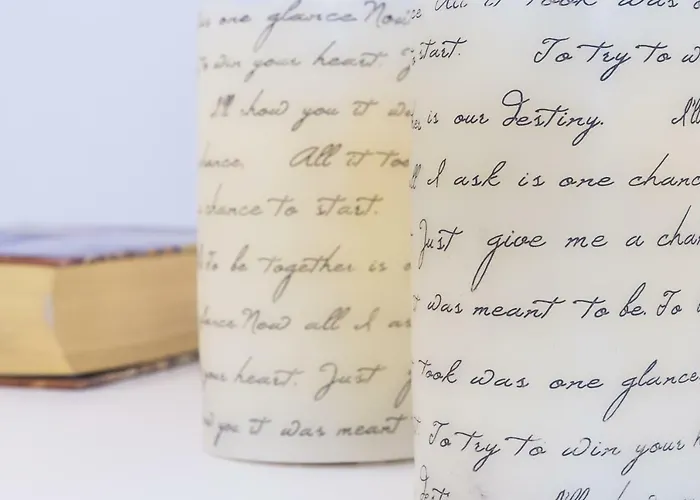 is one glance Now
win your heart.
I'll show you it
chance. All it too
chance To start.
To be together is
glance Now all I as
your heart. Just
you it was meant
All it took was
start. To try to w
is our destiny. I'll
I ask is one chanc
Just give me a cha
was meant to be. To
took was one glance
To try to win your